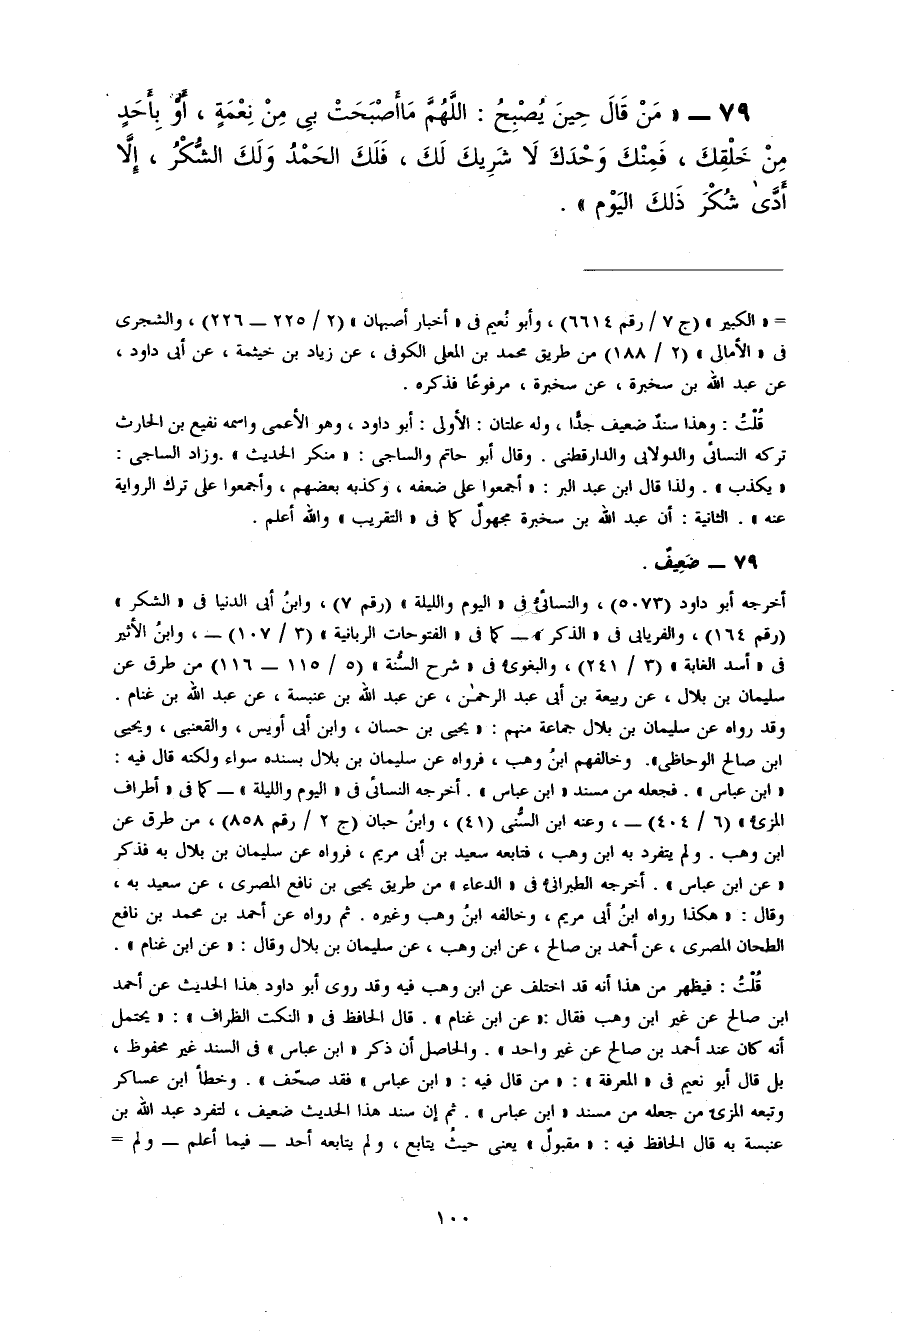 ٧٩ ـــ « مَنْ قَالَ حِينَ يُصْبِحُ : اللَّهُمَّ مَاأَصْبَحَتْ بِي مِنْ نِعْمَةٍ ، أَوْ بِأَحَدٍ
مِنْ خَلْقِكَ ، فَمِنْكَ وَحْدَكَ لَا شَرِيكَ لَكَ ، فَلَكَ الحَمْدُ وَلَكَ الشُّكْرُ ، إِلَّا
أَدَّىٰ شُكْرَ ذَلكَ اليَوْمِ » .
= « الكبير » (ج ٧ / رقم ٦٦١٤) ، وأبو نُعيم فى « أخبار أصبهان » (٢ / ٢٢٥ ـــ ٢٢٦) ، والشجرى
فى « الأمالى » (٢ / ١٨٨) من طريق محمد بن المعلى الكوفى ، عن زياد بن خيثمة ، عن أبى داود ،
عن عبد الله بن سخبرة ، عن سخبرة ، مرفوعًا فذكره .
قُلْتُ : وهذا سندٌ ضعيف جدًّا ، وله علتان : الأولى : أبو داود ، وهو الأعمى واسمه نفيع بن الحارث
تركه النسائى والدولابى والدارقطنى . وقال أبو حاتم والساجى : « منكر الحديث » .وزاد الساجى :
« يكذب » . ولذا قال ابن عبد البر : « أجمعوا على ضعفه ، وكذبه بعضهم ، وأجمعوا على ترك الرواية
عنه » . الثانية : أن عبد الله بن سخبرة مجهولٌ كما فى « التقريب » والله أعلم .
٧٩ ـــ ضَعِيفٌ .
أخرجه أبو داود (٥٠٧٣) ، والنسائىُّ فى « اليوم والليلة » (رقم ٧) ، وابنُ أبى الدنيا فى « الشكر »
(رقم ١٦٤) ، والفريابى فى « الذكر » ـــ كما فى « الفتوحات الربانية » (٣ / ١٠٧) ـــ ، وابنُ الأثير
فى « أسد الغابة » (٣ / ٢٤١) ، والبغوىُّ فى « شرح السُّنة » (٥ / ١١٥ ـــ ١١٦) من طرق عن
سليمان بن بلال ، عن ربيعة بن أبى عبد الرحمٰن ، عن عبد الله بن عنبسة ، عن عبد الله بن غنام .
وقد رواه عن سليمان بن بلال جماعة منهم : « يحيى بن حسان ، وابن أبى أويس ، والقعنبى ، ويحيى
ابن صالح الوحاظى». وخالفهم ابنُ وهب ، فرواه عن سليمان بن بلال بسنده سواء ولكنه قال فيه :
« ابن عباس » . فجعله من مسند « ابن عباس » . أخرجه النسائى فى « اليوم والليلة » ـــ كما فى « أطراف
المزى » (٦ / ٤٠٤) ـــ ، وعنه ابن السُّنى (٤١) ، وابنُ حبان (ج ٢ / رقم ٨٥٨) ، من طرق عن
ابن وهب . ولم يتفرد به ابن وهب ، فتابعه سعيد بن أبى مريم ، فرواه عن سليمان بن بلال به فذكر
« عن ابن عباس » . أخرجه الطبرانىُّ فى « الدعاء » من طريق يحيى بن نافع المصرى ، عن سعيد به ،
وقال : « هكذا رواه ابنُ أبى مريم ، وخالفه ابنُ وهب وغيره . ثم رواه عن أحمد بن محمد بن نافع
الطحان المصرى ، عن أحمد بن صالح ، عن ابن وهب ، عن سليمان بن بلال وقال : « عن ابن غنام » .
قُلْتُ : فيظهر من هذا أنه قد اختلف عن ابن وهب فيه وقد روى أبو داود هذا الحديث عن أحمد
ابن صالح عن غير ابن وهب فقال :« عن ابن غنام » . قال الحافظ فى « النكت الظراف » : « يحتمل
أنه كان عند أحمد بن صالح عن غير واحد » . والحاصل أن ذكر « ابن عباس » فى السند غير محفوظ ،
بل قال أبو نعيم فى « المعرفة » : « من قال فيه : « ابن عباس » فقد صحّف » . وخطأ ابن عساكر
وتبعه المزى من جعله من مسند « ابن عباس » . ثم إن سند هذا الحديث ضعيف ، لتفرد عبد الله بن
عنبسة به قال الحافظ فيه : « مقبولٌ » يعنى حيثُ يتابع ، ولم يتابعه أحد ـــ فيما أعلم ـــ ولم =
١٠٠